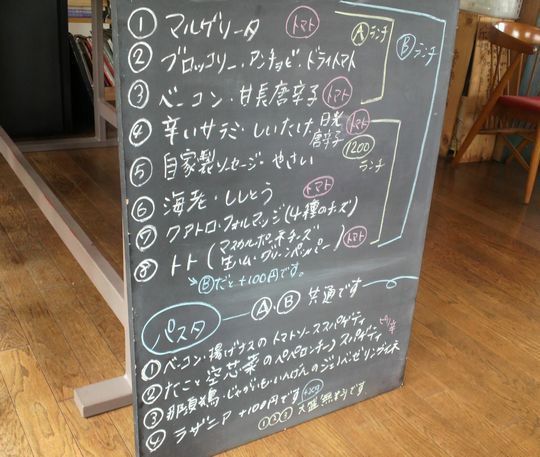 ① マルゲリータ トマト Ⓐランチ
② ブロッコリー・アンチョビ・ドライトマト Ⓑランチ
③ ベーコン・甘長唐辛子 トマト
④ 辛いサラミ・しいたけ 唐辛子 トマト
⑤ 自家製ソーセージ・やさい 1200 ランチ
⑥ 海老・ししとう トマト
⑦ クアトロ・フォルマッジ(4種のチーズ)
⑧ トト(マスカルポーネチーズ 生ハム・グリーンペッパー) トマト
Ⓑだと+100円です。
パスタ Ⓐ・Ⓑ 共通です
① ベーコン・揚げナスのトマトソーススパゲティ ピリ辛
② たこと空芯菜のペペロンチーノスパゲティ
③ 那須鶏・じゃがいも・いんげんのジェノベーゼリングイネ
④ ラザニア +100円です ①②③大盛無料です